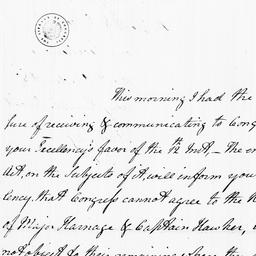 This morning I had the
sure of receiving & communicating to Cong
your Excellency's favor of the 12th Inst. — The en
Act, on the Subjects of it, will inform you
lency, that Congress cannot agree to the R
of Major Harnage & Captain Hawker,
not object to their remaining where the